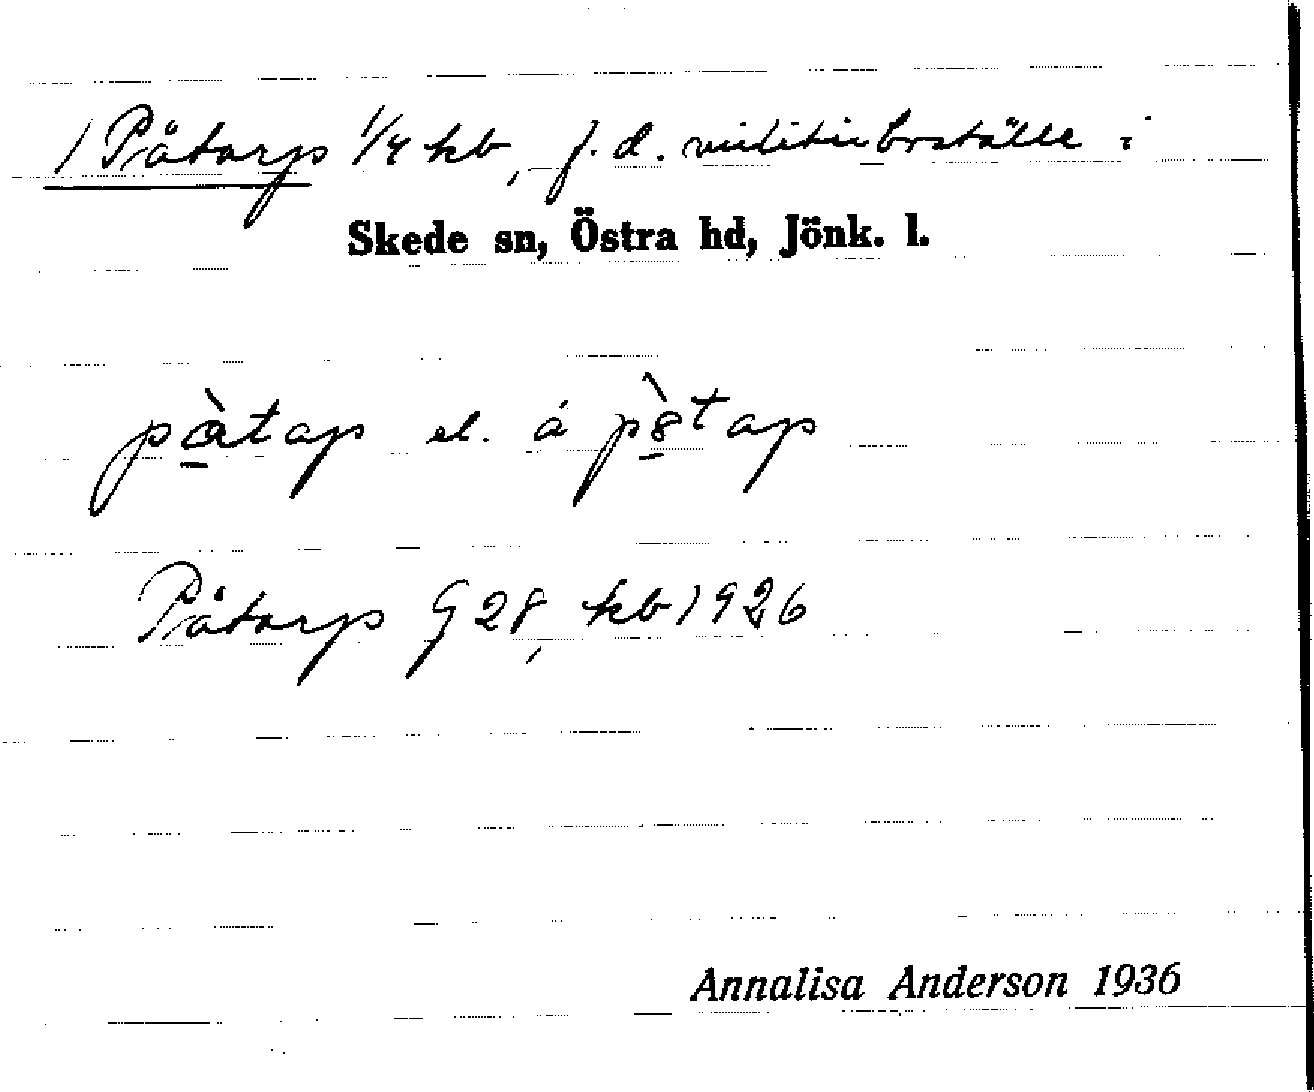 1 Påtorp 1/4 kb, f.d. militieboställe i
Skede sn, Östra hd, Jönk. l.
påtap el. å påtap
Påtorp G 28, kb 1926
Annalisa Anderson 1936